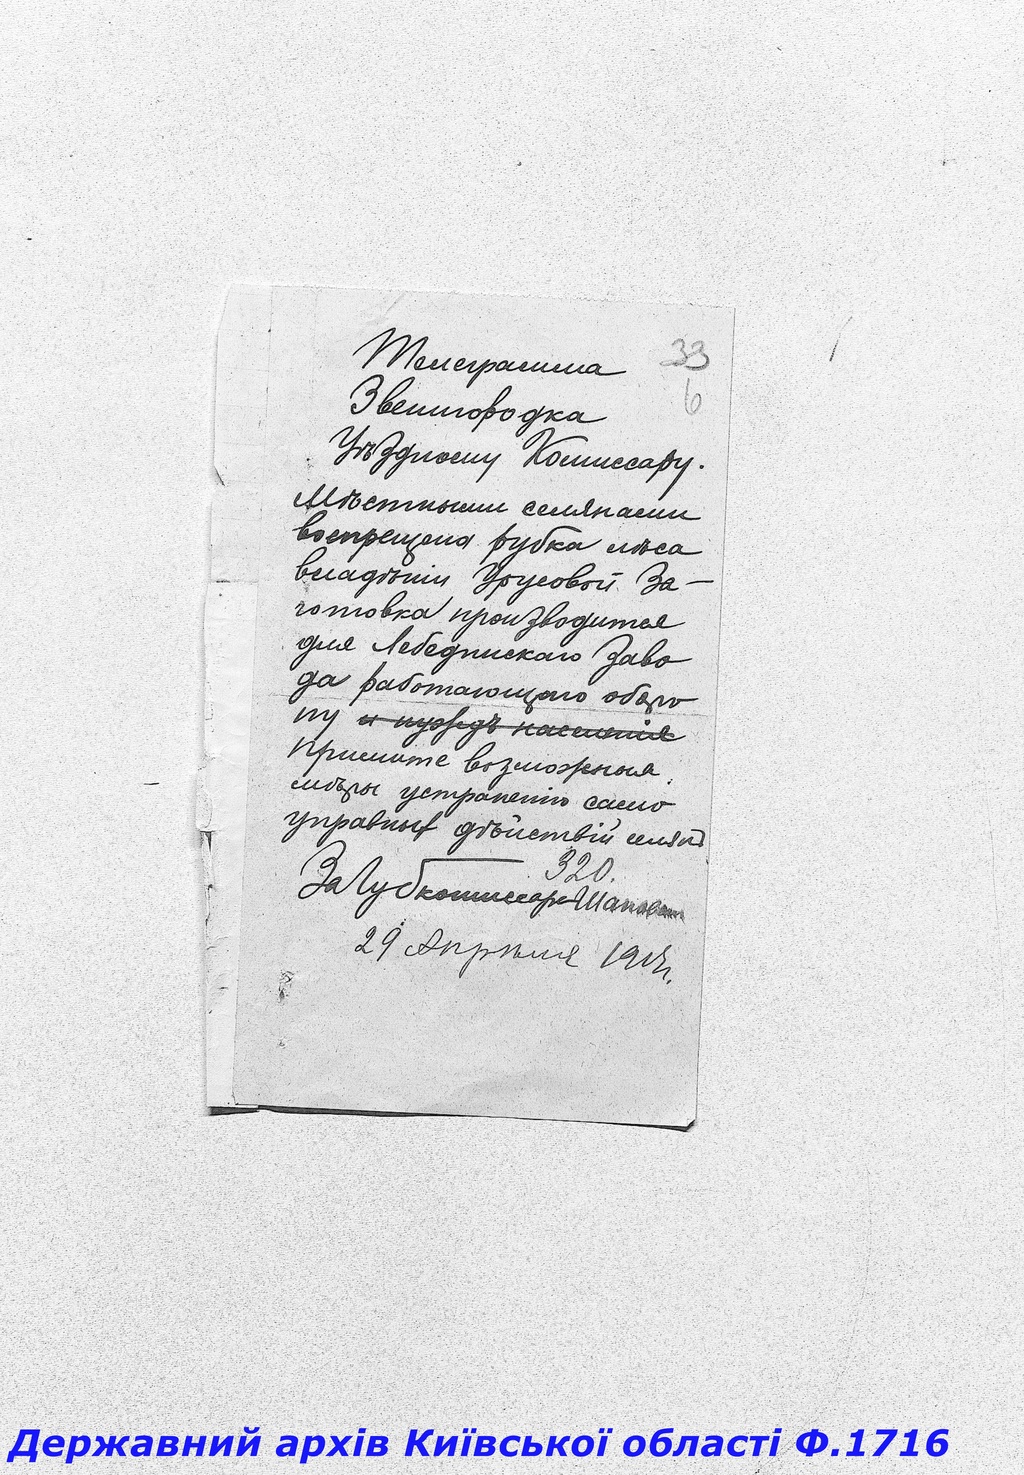 Телеграмма
33
6
Звенигородка
Уѣздному Комиссару.
Мѣстными селянами
воспрещена рубка лѣса
владѣніи Урусовой. За-
готовка производится
для Лебединскаго Заво
да работающаго оборо
ну и нуждъ населенія
Примите возможныя
мѣры устраненію само
управных дѣйствій селян
320.
За Губкомиссар
29 Апрѣля 1917 г.
Державний архів Київської області Ф.1716